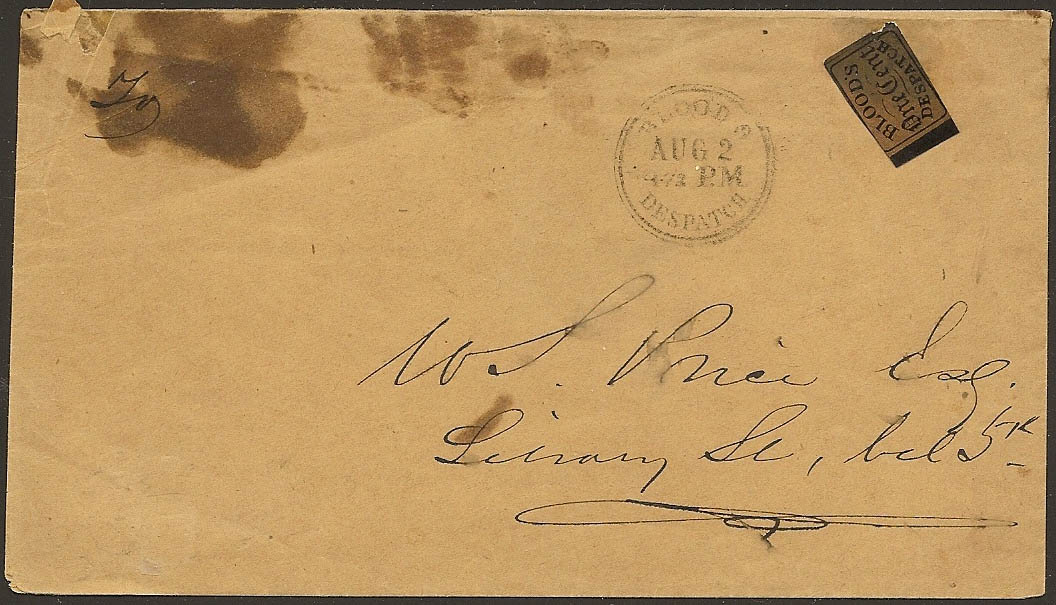 To
BLOOD'S
One Cent
DESPATCH
BLOOD'S
AUG 2
P.M
DESPATCH
W S. Price Esq.
Library St, bel 5th